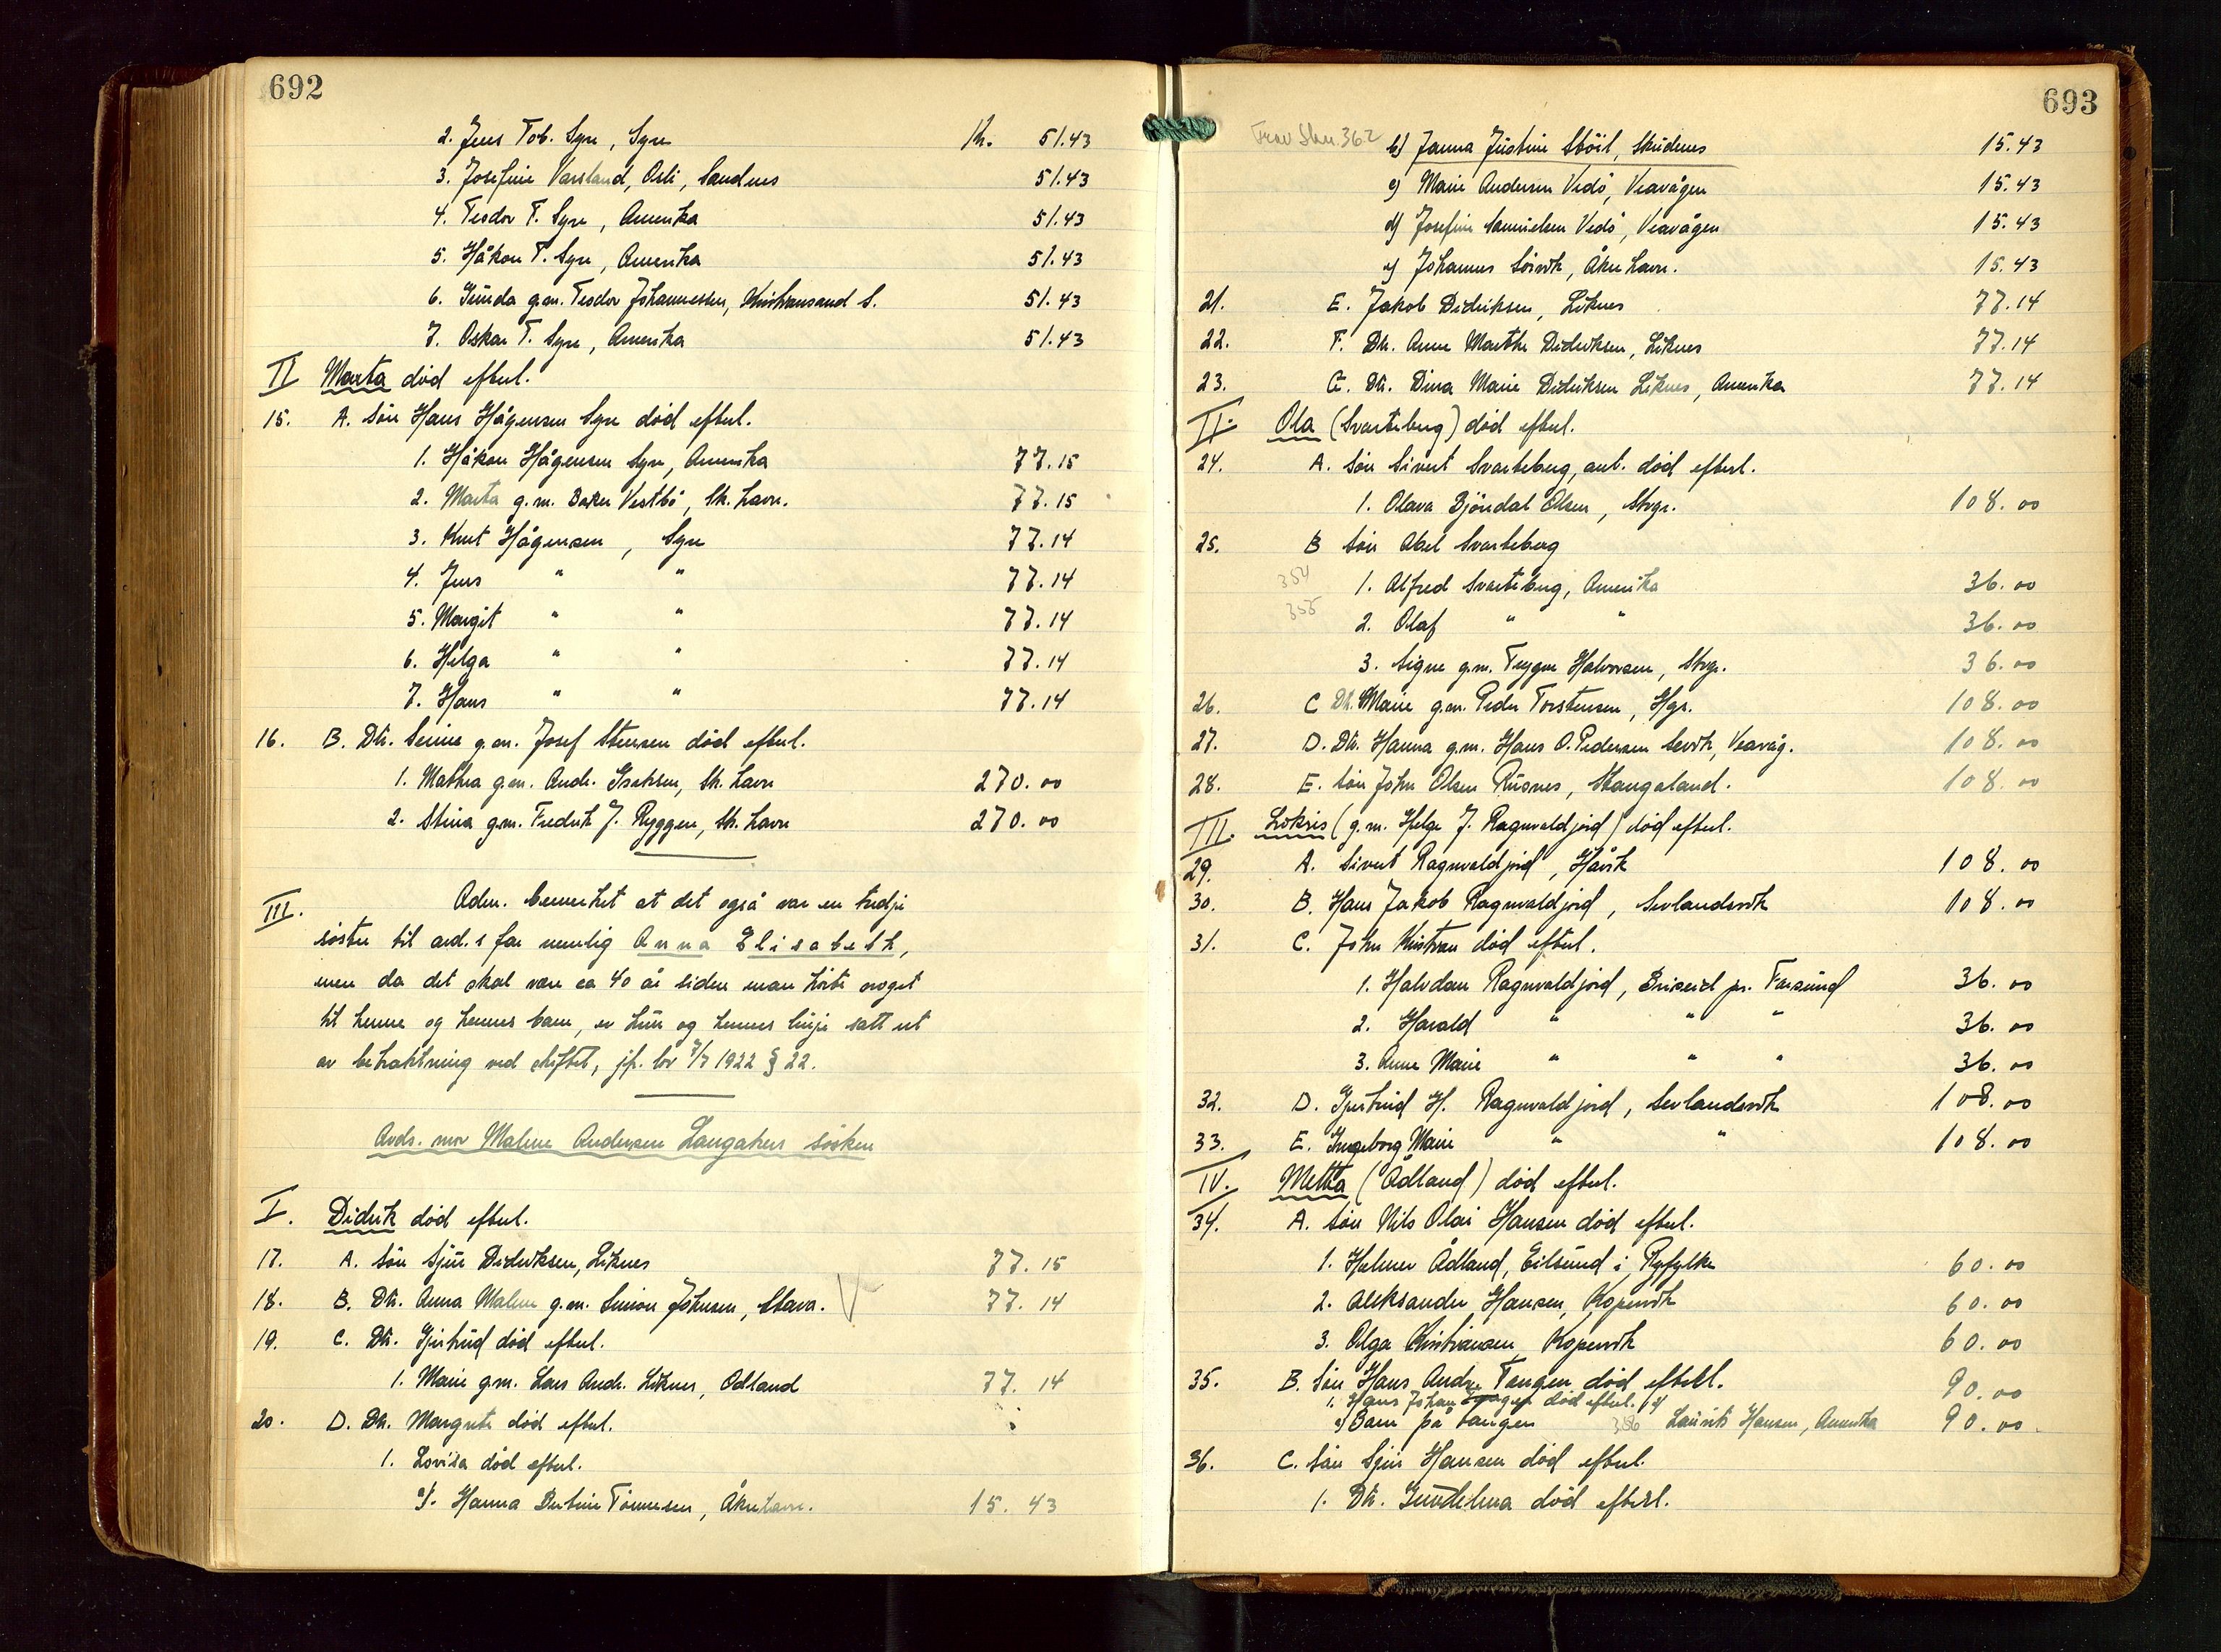 692
2. Jens Tob. Syre, Syre Kr. 51.43
3. Josefine Varsland, Osli, Sandnes 51.43
4. Teodor T. Syre, Amerika 51.43
5. Håkon T. Syre, Amerika 51.43
6. Gunda g.m. Teodor Johannessen, Kristiansand S. 51.43
7. Oskar T. Syre, Amerika 51.43
II Marta död efterl.
15. A. Sön Hans Hågensen Syre död efterl.
1. Håkon Hågensen Syre, Amerika 77.15
2. Marta g.m. Baker Vestbö, Sk.havn. 77.15
3. Knut Hågensen, Syre 77.14
4. Jens " " 77.14
5. Margit " " 77.14
6. Helga " " 77.14
7. Hans " " 77.14
16. B. Dtr. Serine g.m. Josef Stensen död efterl.
1. Mathea g.m. Andr. Isaksen, Sk.havn 270.00
2. Stina g.m. Fredrik J. Ryggen, Sk.havn 270.00
III. Adm. bemerket at det også var en tredje
söster til avd.s far nemlig Anna Elisabeth,
men da det skal være ca 40 år siden man hörte noget
til henne og hennes barn, er hun og hennes linje satt ut
av betraktning ved skiftet, jfr. lov 7/7 1922 § 22.
Avds. mor Malene Andersen Langåkers sösken
I. Didrik död efterl.
17. A. Sön Sjur Didriksen, Liknes 77.15
18. B. Dtr. Anna Malene g.m. Simon Johnsen, Stava. 77.14
19. C. Dtr. Gjertrud död efterl.
1. Marie g.m. Lars Andr. Liknes, Ådland 77.14
20. D. Dtr. Margrete död efterl.
1. Lovisa död efterl.
a). Hanna Bertine Tönnesen, Åkrehavn. 15.43
693
362 b) Janna Justine Stöil, Skudenes 15.43
c) Marie Andersen Vedö, Veavågen 15.43
d) Josefine Samuelsen Vedö, Veavågen 15.43
e) Johannes Sörvik, Åkrehavn. 15.43
21. E. Jakob Didriksen, Liknes 77.14
22. F. Dtr. Anne Marthe Didriksen, Liknes 77.14
23. G. Dtr. Dina Marie Didriksen Liknes, Amerika 77.14
II. Ola (Svarteberg) död efterl.
24. A. Sön Sivert Svarteberg, ant. död efterl.
1. Olava Bjöndal Olsen, Stvgr. 108.00
25. B Sön Abel Svarteberg
354 1. Alfred Svarteberg, Amerika 36.00
355 2. Olaf " " 36.00
3. Signe g.m. Trygve Halvorsen, Stvgr. 36.00
26. C Dtr. Marie g.m. Peder Torstensen, Hgs. 108.00
27. D. Dtr. Hanna g.m. Hans O. Pedersen Sevik, Veavåg. 108.00
28. E. Sön John Olsen Rusnes, Stangaland. 108.00
III. Lokris (g.m. Helge J. Ragnvaldjord) död efterl.
29. A. Sivert Ragnvaldjord, Håvik 108.00
30. B. Hans Jakob Ragnvaldjord, Sevlandsvik 108.00
31. C. John Kristian död efterl.
1. Halvdan Ragnvaldjord, Briseid pr. Farsund 36.00
2. Harald " " " 36.00
3. Anne Marie " " " 36.00
32. D. Gjertrud H. Ragnvaldjord, Sevlandsvik 108.00
33. E. Ingeborg Marie " " 108.00
IV. Metta (Ådland) död efterl.
34. A. Sön Nils Olai Hansen död efterl.
1. Helmer Ådland, Eilsund i Ryfylke 60.00
2. Aleksander Hansen, Kopervik 60.00
3. Olga Kristiansen, Kopervik 60.00
35. B. Sön Hans Andr. Tangen död efterl. 90.00
1. Hans Johan död efterl.
a) Barn på Tangen 356 Laurits Hansen, Amerika 90.00
36. C. Sön Sjur Hansen död efterl.
1. Dtr. Gundelena död efterl.